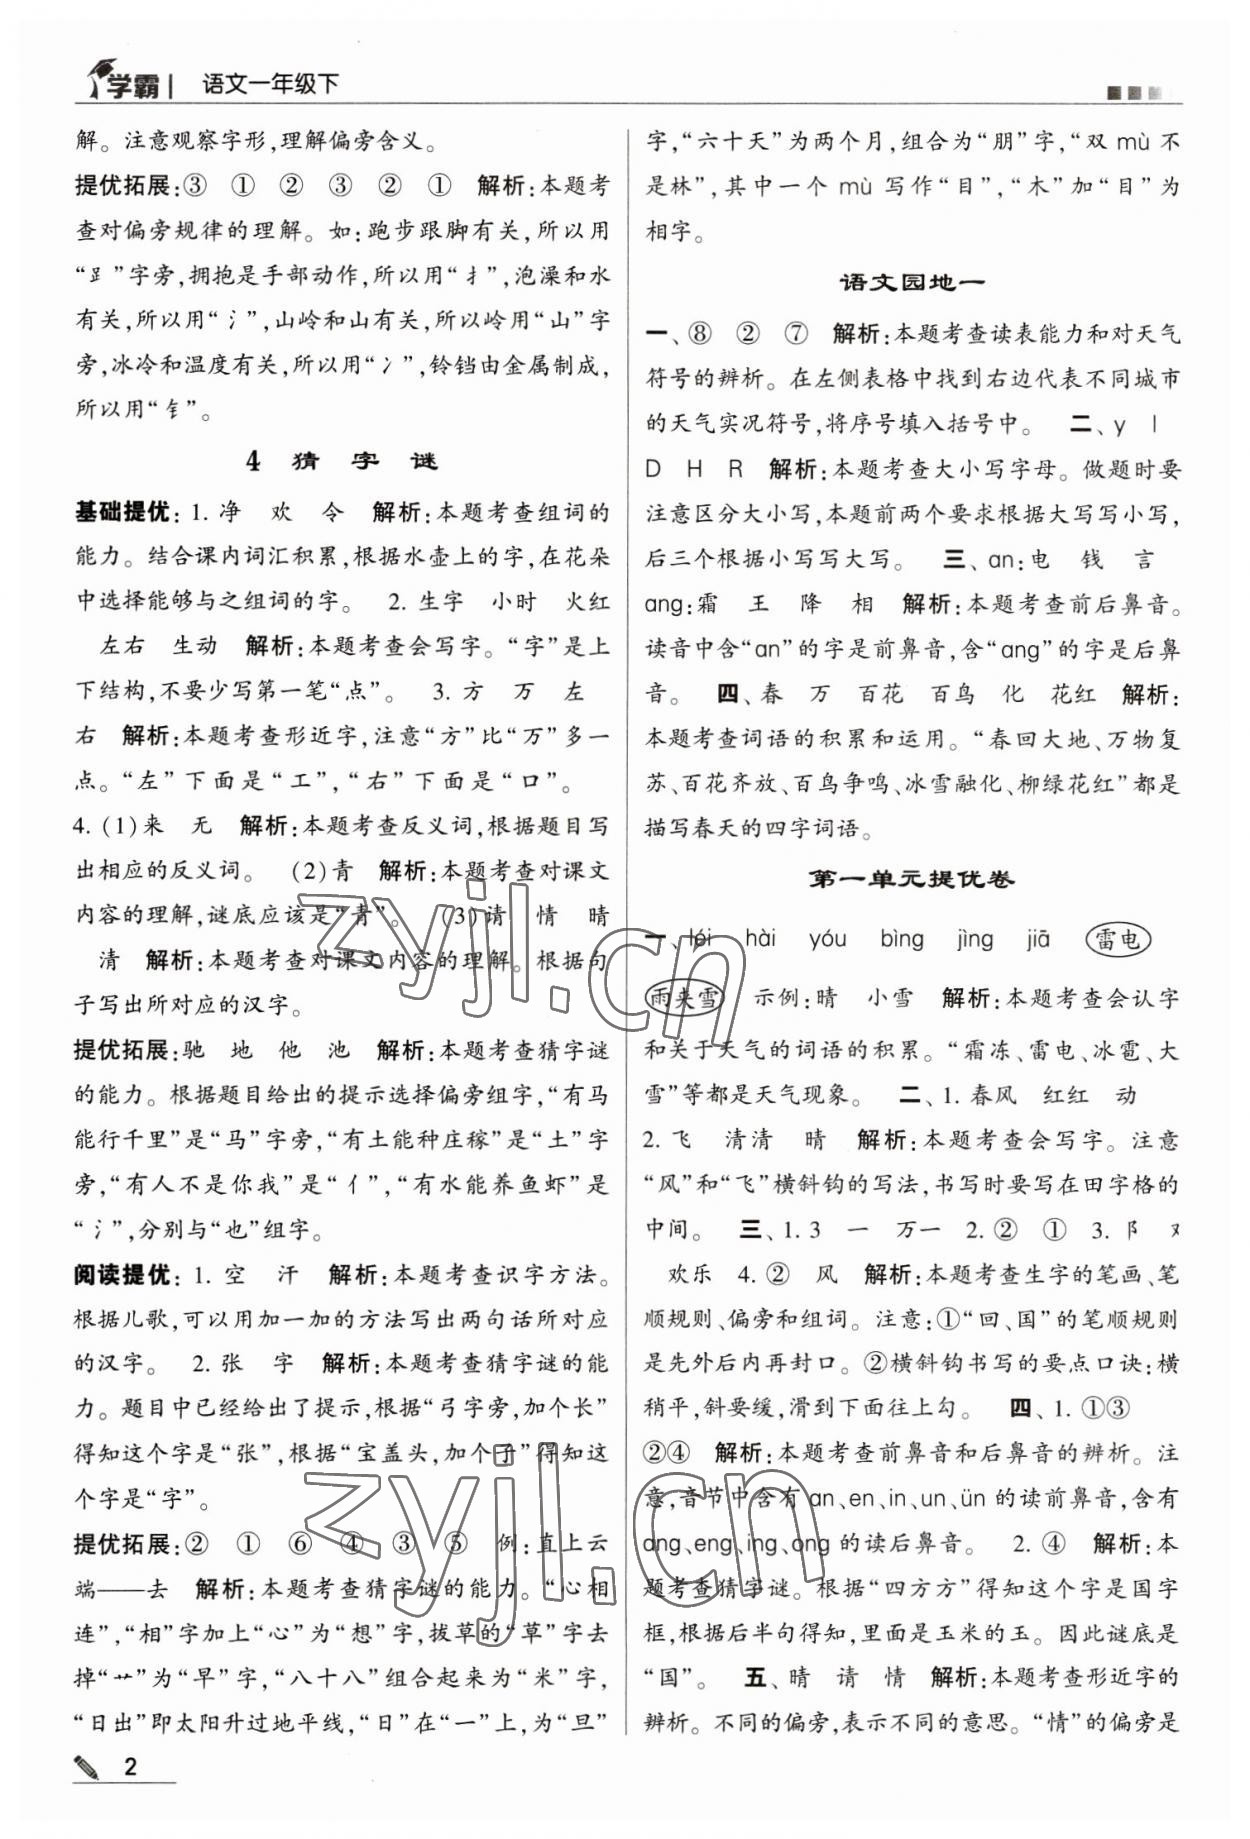 学霸 | 语文一年级下
解。注意观察字形,理解偏旁含义。
提优拓展:③ ① ② ③ ② ① 解析:本题考
查对偏旁规律的理解。如:跑步跟脚有关,所以用
“⻊”字旁,拥抱是手部动作,所以用“扌”,泡澡和水
有关,所以用“氵”,山岭和山有关,所以岭用“山”字
旁,冰冷和温度有关,所以用“冫”,铃铛由金属制成,
所以用“钅”。
4 猜 字 谜
基础提优: 1. 净 欢 令 解析:本题考查组词的
能力。结合课内词汇积累,根据水壶上的字,在花朵
中选择能够与之组词的字。 2. 生字 小时 火红
左右 生动 解析:本题考查会写字。“字”是上
下结构,不要少写第一笔“点”。 3. 方 万 左
右 解析:本题考查形近字,注意“方”比“万”多一
点。“左”下面是“工”,“右”下面是“口”。
4. (1)来 无 解析:本题考查反义词,根据题目写
出相应的反义词。 (2)青 解析:本题考查对课文
内容的理解,谜底应该是“青”。 (3)请 情 晴
清 解析:本题考查对课文内容的理解。根据句
子写出所对应的汉字。
提优拓展:驰 地 他 池 解析:本题考查猜字谜
的能力。根据题目给出的提示选择偏旁组字,“有马
能行千里”是“马”字旁,“有土能种庄稼”是“土”字
旁,“有人不是你我”是“亻”,“有水能养鱼虾”是
“氵”,分别与“也”组字。
阅读提优: 1. 空 汗 解析:本题考查识字方法。
根据儿歌,可以用加一加的方法写出两句话所对应
的汉字。 2. 张 字 解析:本题考查猜字谜的能
力。题目中已经给出了提示,根据“弓字旁,加个长”
得知这个字是“张”,根据“宝盖头,加个子”得知这
个字是“字”。
提优拓展:② ① ⑥ ④ ③ ⑤ 例:直上云
端——去 解析:本题考查猜字谜的能力。“心相
连”,“相”字加上“心”为“想”字,拔草的“草”字去
掉“艹”为“早”字,“八十八”组合起来为“米”字,
“日出”即太阳升过地平线,“日”在“一”上,为“旦”
2
字,“六十天”为两个月,组合为“朋”字,“双 mù 不
是林”,其中一个 mù 写作“目”,“木”加“目”为
相字。
语文园地一
一、⑧ ② ⑦ 解析:本题考查读表能力和对天气
符号的辨析。在左侧表格中找到右边代表不同城市
的天气实况符号,将序号填入括号中。 二、y l
D H R 解析:本题考查大小写字母。做题时要
注意区分大小写,本题前两个要求根据大写写小写,
后三个根据小写写大写。 三、an:电 钱 言
ang:霜 王 降 相 解析:本题考查前后鼻音。
读音中含“an”的字是前鼻音,含“ang”的字是后鼻
音。 四、春 万 百花 百鸟 化 花红 解析:
本题考查词语的积累和运用。“春回大地、万物复
苏、百花齐放、百鸟争鸣、冰雪融化、柳绿花红”都是
描写春天的四字词语。
第一单元提优卷
一、léi hài yóu bìng jìng jiā 雷电
雨来雪 示例:晴 小雪 解析:本题考查会认字
和关于天气的词语的积累。“霜冻、雷电、冰雹、大
雪”等都是天气现象。 二、1. 春风 红红 动
2. 飞 清清 晴 解析:本题考查会写字。注意
“风”和“飞”横斜钩的写法,书写时要写在田字格的
中间。 三、1. 3 一 万一 2. ② ① 3. 阝 又
欢乐 4. ② 风 解析:本题考查生字的笔画、笔
顺规则、偏旁和组词。注意:①“回、国”的笔顺规则
是先外后内再封口。②横斜钩书写的要点口诀:横
稍平,斜要缓,滑到下面往上勾。 四、1. ①③
②④ 解析:本题考查前鼻音和后鼻音的辨析。注
意,音节中含有 an、en、in、un、ün 的读前鼻音,含有
ang、eng、ing、ong 的读后鼻音。 2. ④ 解析:本
题考查猜字谜。根据“四方方”得知这个字是国字
框,根据后半句得知,里面是玉米的玉。因此谜底是
“国”。 五、晴 请 情 解析:本题考查形近字的
辨析。不同的偏旁,表示不同的意思。“情”的偏旁是
zyjl.cn
zyjl.cn